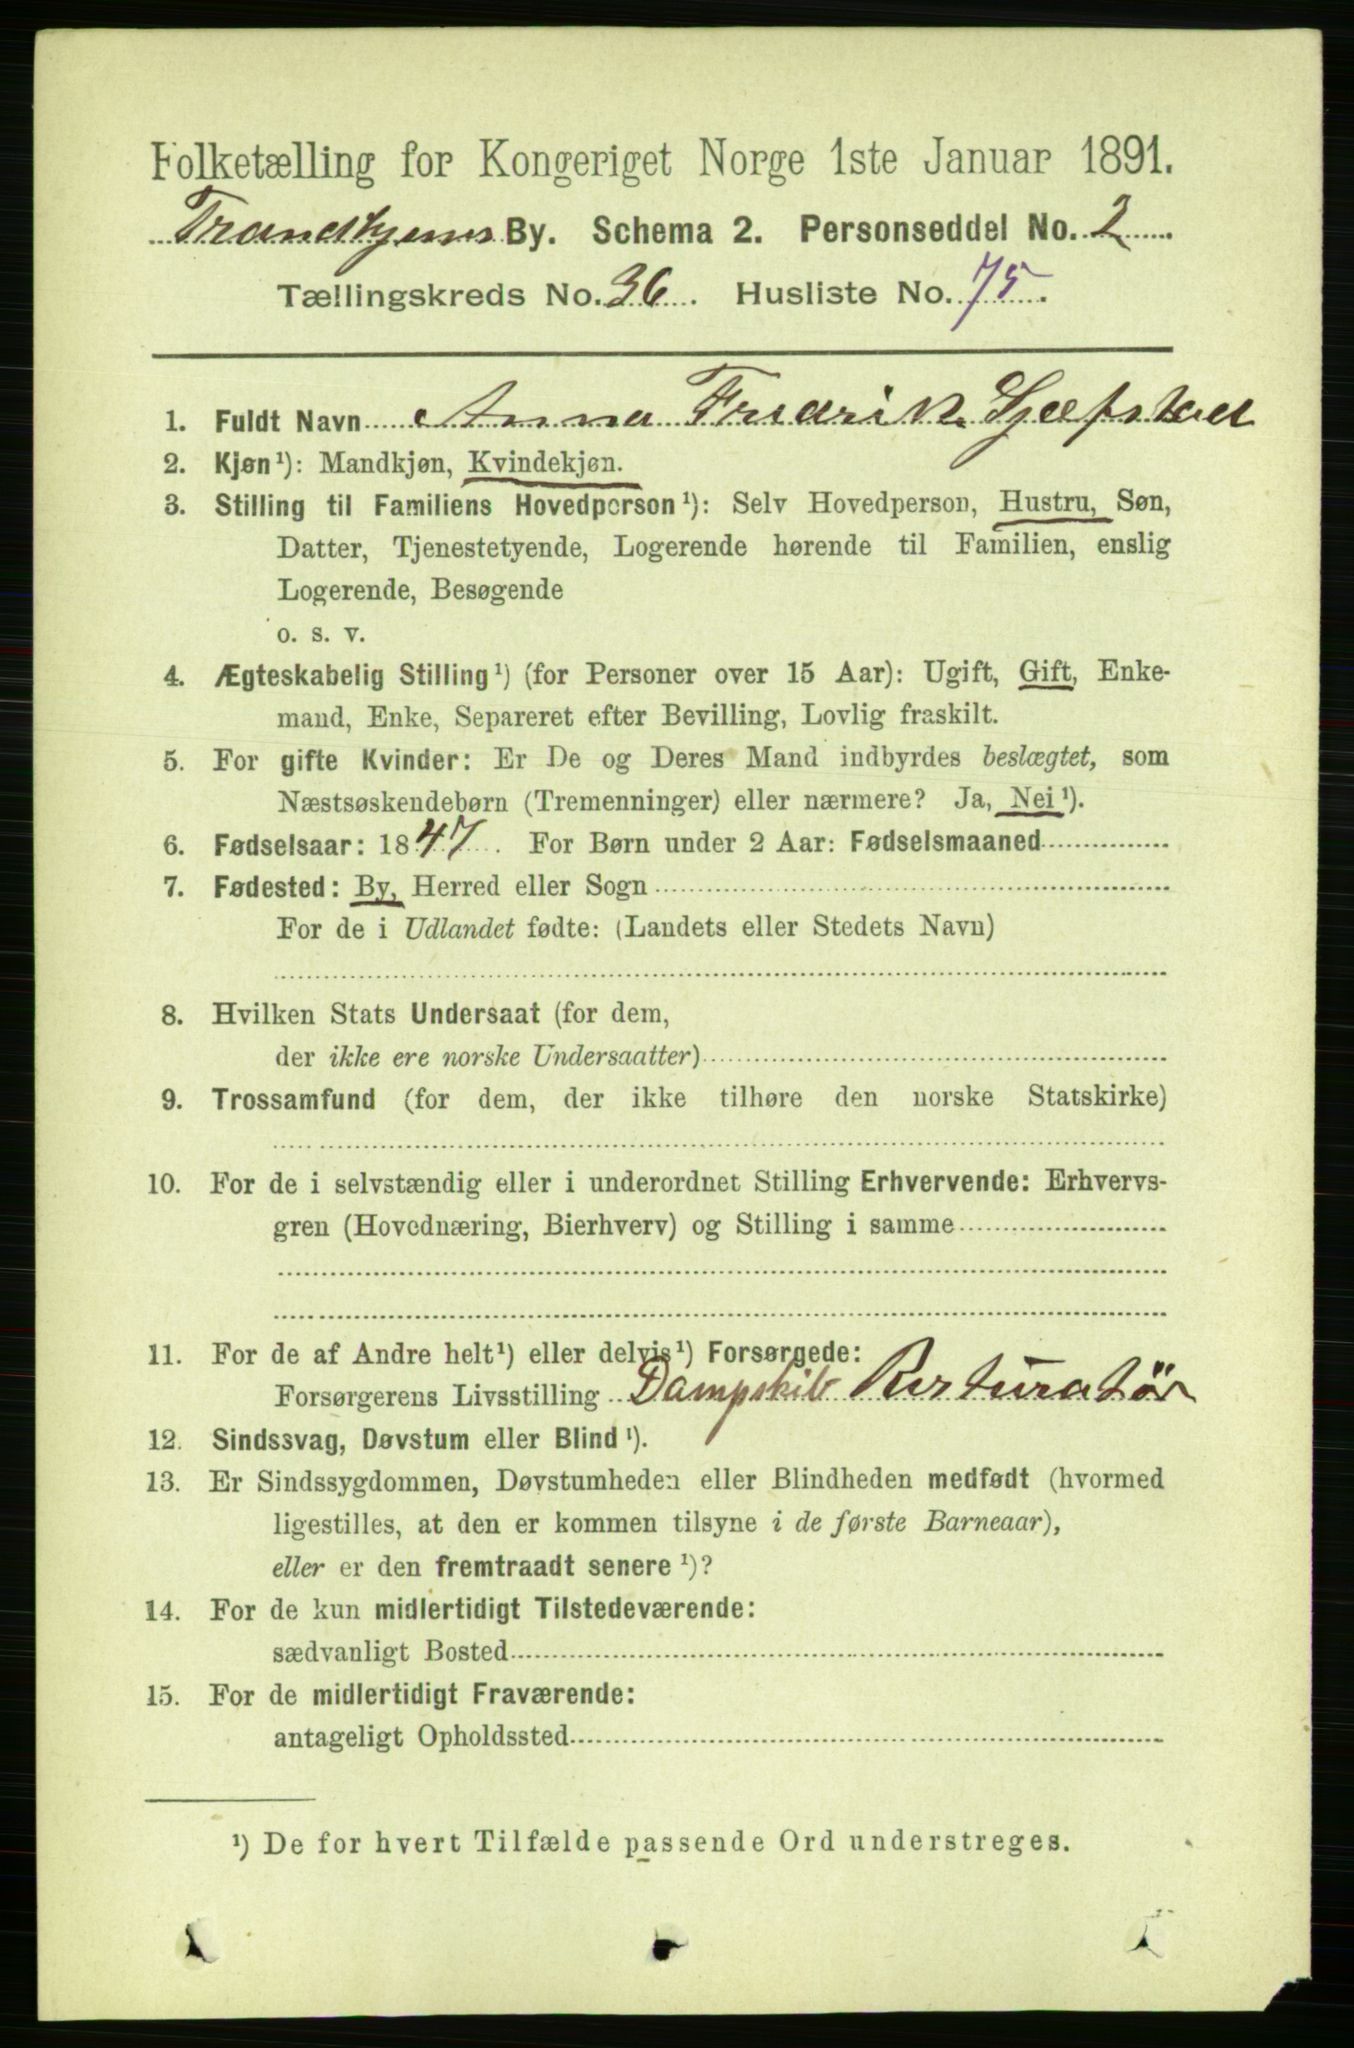 Folketælling for Kongeriget Norge 1ste Januar 1891.
Trondhjems By. Schema 2. Personseddel No. 2
Tællingskreds No. 36. Husliste No. 75.
1. Fuldt Navn Anna Fredrik Sjæfstad
2. Kjøn¹): Mandkjøn, Kvindekjøn.
3. Stilling til Familiens Hovedperson¹): Selv Hovedperson, Hustru, Søn,
Datter, Tjenestetyende, Logerende hørende til Familien, enslig
Logerende, Besøgende
o. s. v.
4. Ægteskabelig Stilling¹) (for Personer over 15 Aar): Ugift, Gift, Enke-
mand, Enke, Separeret efter Bevilling, Lovlig fraskilt.
5. For gifte Kvinder: Er De og Deres Mand indbyrdes beslægtet, som
Næstsøskendebørn (Tremenninger) eller nærmere? Ja, Nei¹).
6. Fødselsaar: 1847. For Børn under 2 Aar: Fødselsmaaned
7. Fødested: By, Herred eller Sogn
For de i Udlandet fødte: (Landets eller Stedets Navn)
8. Hvilken Stats Undersaat (for dem,
der ikke ere norske Undersaatter)
9. Trossamfund (for dem, der ikke tilhøre den norske Statskirke)
10. For de i selvstændig eller i underordnet Stilling Erhvervende: Erhvervs-
gren (Hovednæring, Bierhverv) og Stilling i samme
11. For de af Andre helt¹) eller delvis¹) Forsørgede:
Forsørgerens Livsstilling Dampskib Resturatör
12. Sindssvag, Døvstum eller Blind¹).
13. Er Sindssygdommen, Døvstumheden eller Blindheden medfødt (hvormed
ligestilles, at den er kommen tilsyne i de første Barneaar),
eller er den fremtraadt senere¹)?
14. For de kun midlertidigt Tilstedeværende:
sædvanligt Bosted
15. For de midlertidigt Fraværende:
antageligt Opholdssted
¹) De for hvert Tilfælde passende Ord understreges.